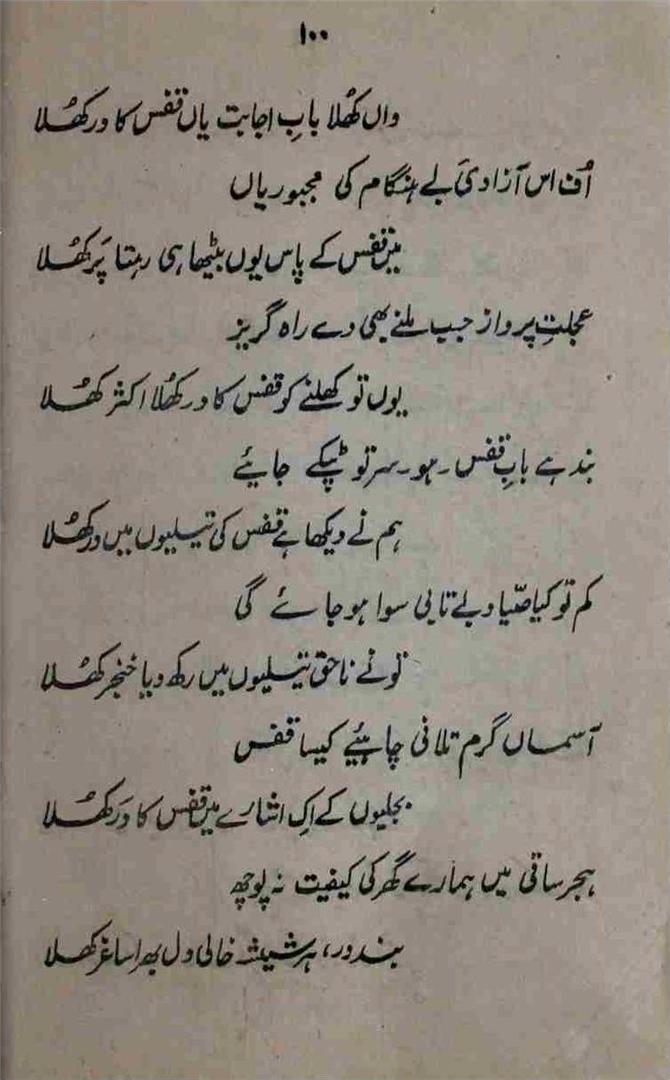 ۱۰۰
واں کھُلا بابِ اجابت یاں قفس کا در کھُلا
اُف اس آزادیٔ بے ہنگام کی مجبوریاں
میں قفس کے پاس یوں بیٹھا ہی رہتا پَر کھُلا
عجلتِ پرواز جب ملنے بھی دے راہ گریز
یوں تو کھلنے کو قفس کا در کھُلا اکثر کھُلا
بند ہے بابِ قفس۔ ہو۔ سر تو ٹپکے جایئے
ہم نے دیکھا ہے قفس کی تیلیوں میں در کھُلا
کم تو کیا صیّاد بے تابی سوا ہو جائے گی
تو نے ناحق تیلیوں میں رکھ دیا خنجر کھُلا
آسماں گرم تلافی چاہیئے کیسا قفس
بجلیوں کے اِک اشارے میں قفس کا دَر کھُلا
ہجر ساقی میں ہمارے گھر کی کیفیت نہ پوچھ
بند در، ہر شیشہ خالی دل بھرا ساغر کھلا